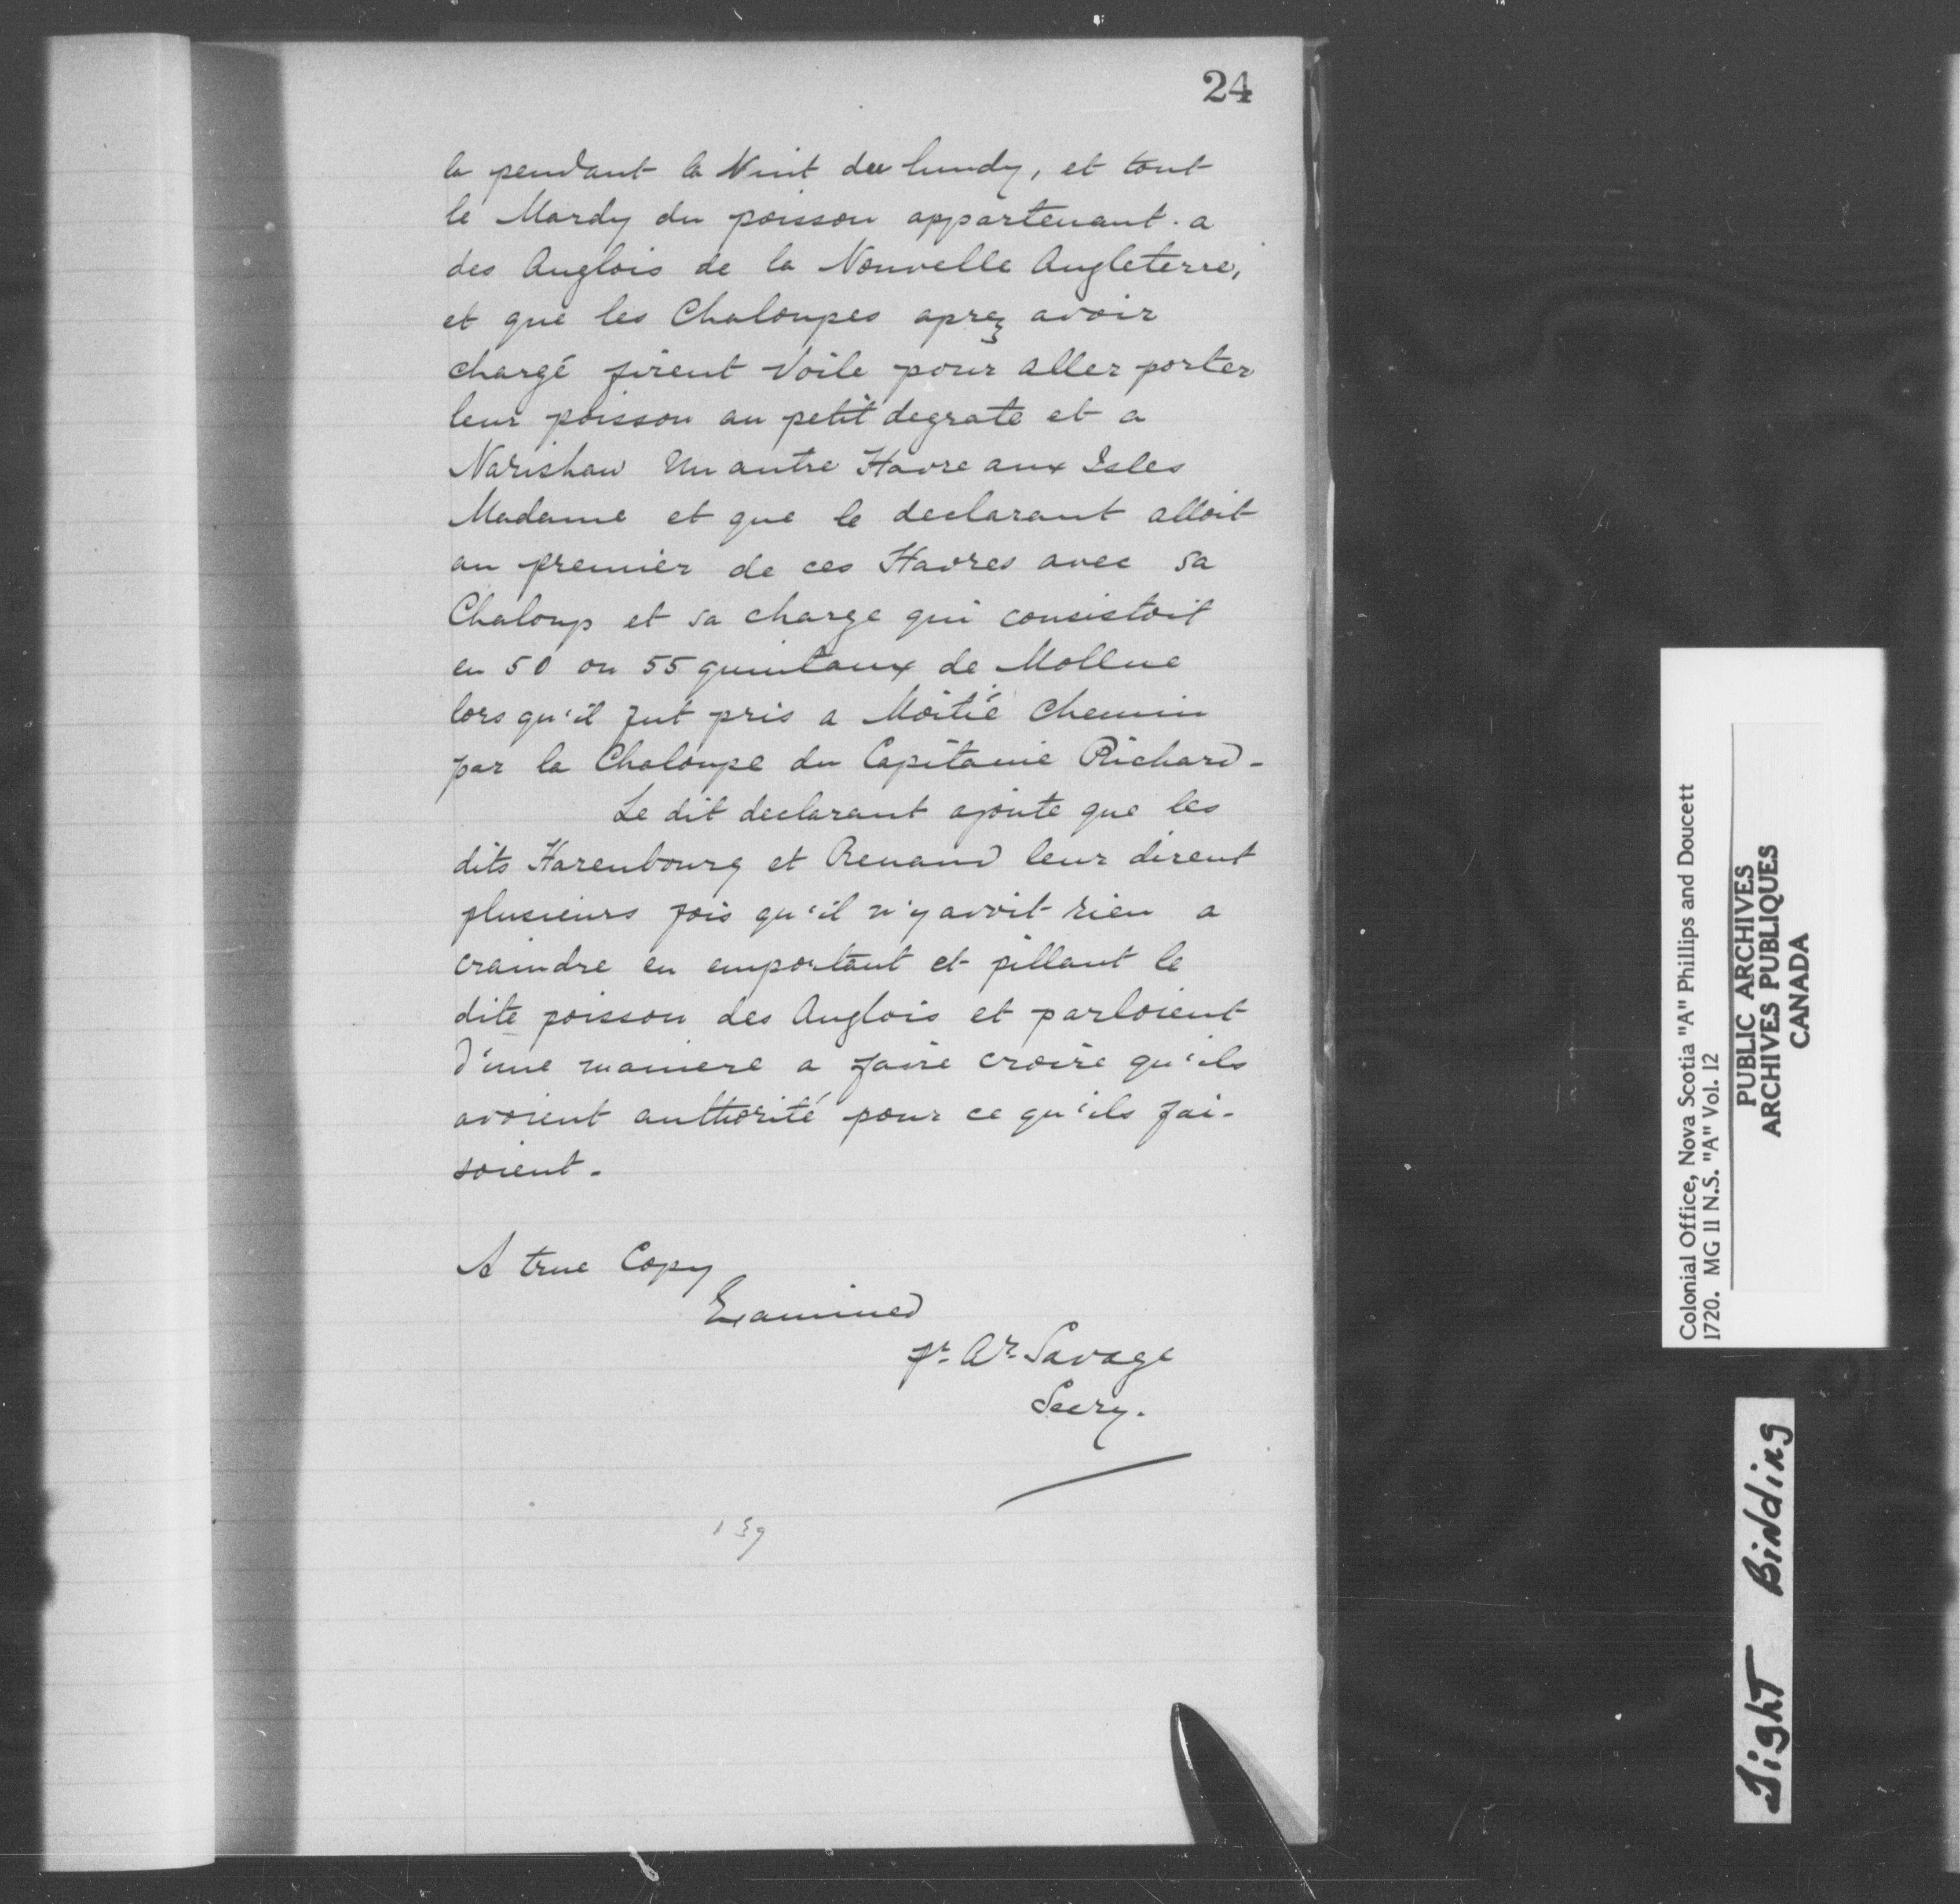 24
la pendant la Nuit du lundy, et tout
le Mardy du poisson appartenant a
des Anglois de la Nouvelle Angleterre,
et que les Chaloupes aprez avoir
chargé firent Voile pour aller porter
leur poisson au petit degrate et a
Narishaw Un autre Havre aux Isles
Madame et que le declarant alloit
au premier de ces Havres avec sa
Chaloup et sa charge qui consistoit
en 50 ou 55 quintaux de Mollue
lors qu'il fut pris a Moitié Chemin
par la Chaloupe du Capitaine Richard -
Le dit declarant ajoute que les
dits Harenbourg et Renaud leur dirent
plusieurs fois qu'il n'y avoit rien a
craindre en emportant et pillant le
dite poisson des Anglois et parloient
d'une maniere a faire croire qu'ils
avoient authorité pour ce qu'ils fai-
soient -
A true Copy
Examined
pr. Ar. Savage
Secry.
139
Colonial Office, Nova Scotia "A" Phillips and Doucett
1720. MG 11 N.S. "A" Vol. 12
PUBLIC ARCHIVES
ARCHIVES PUBLIQUES
CANADA
Tight Binding